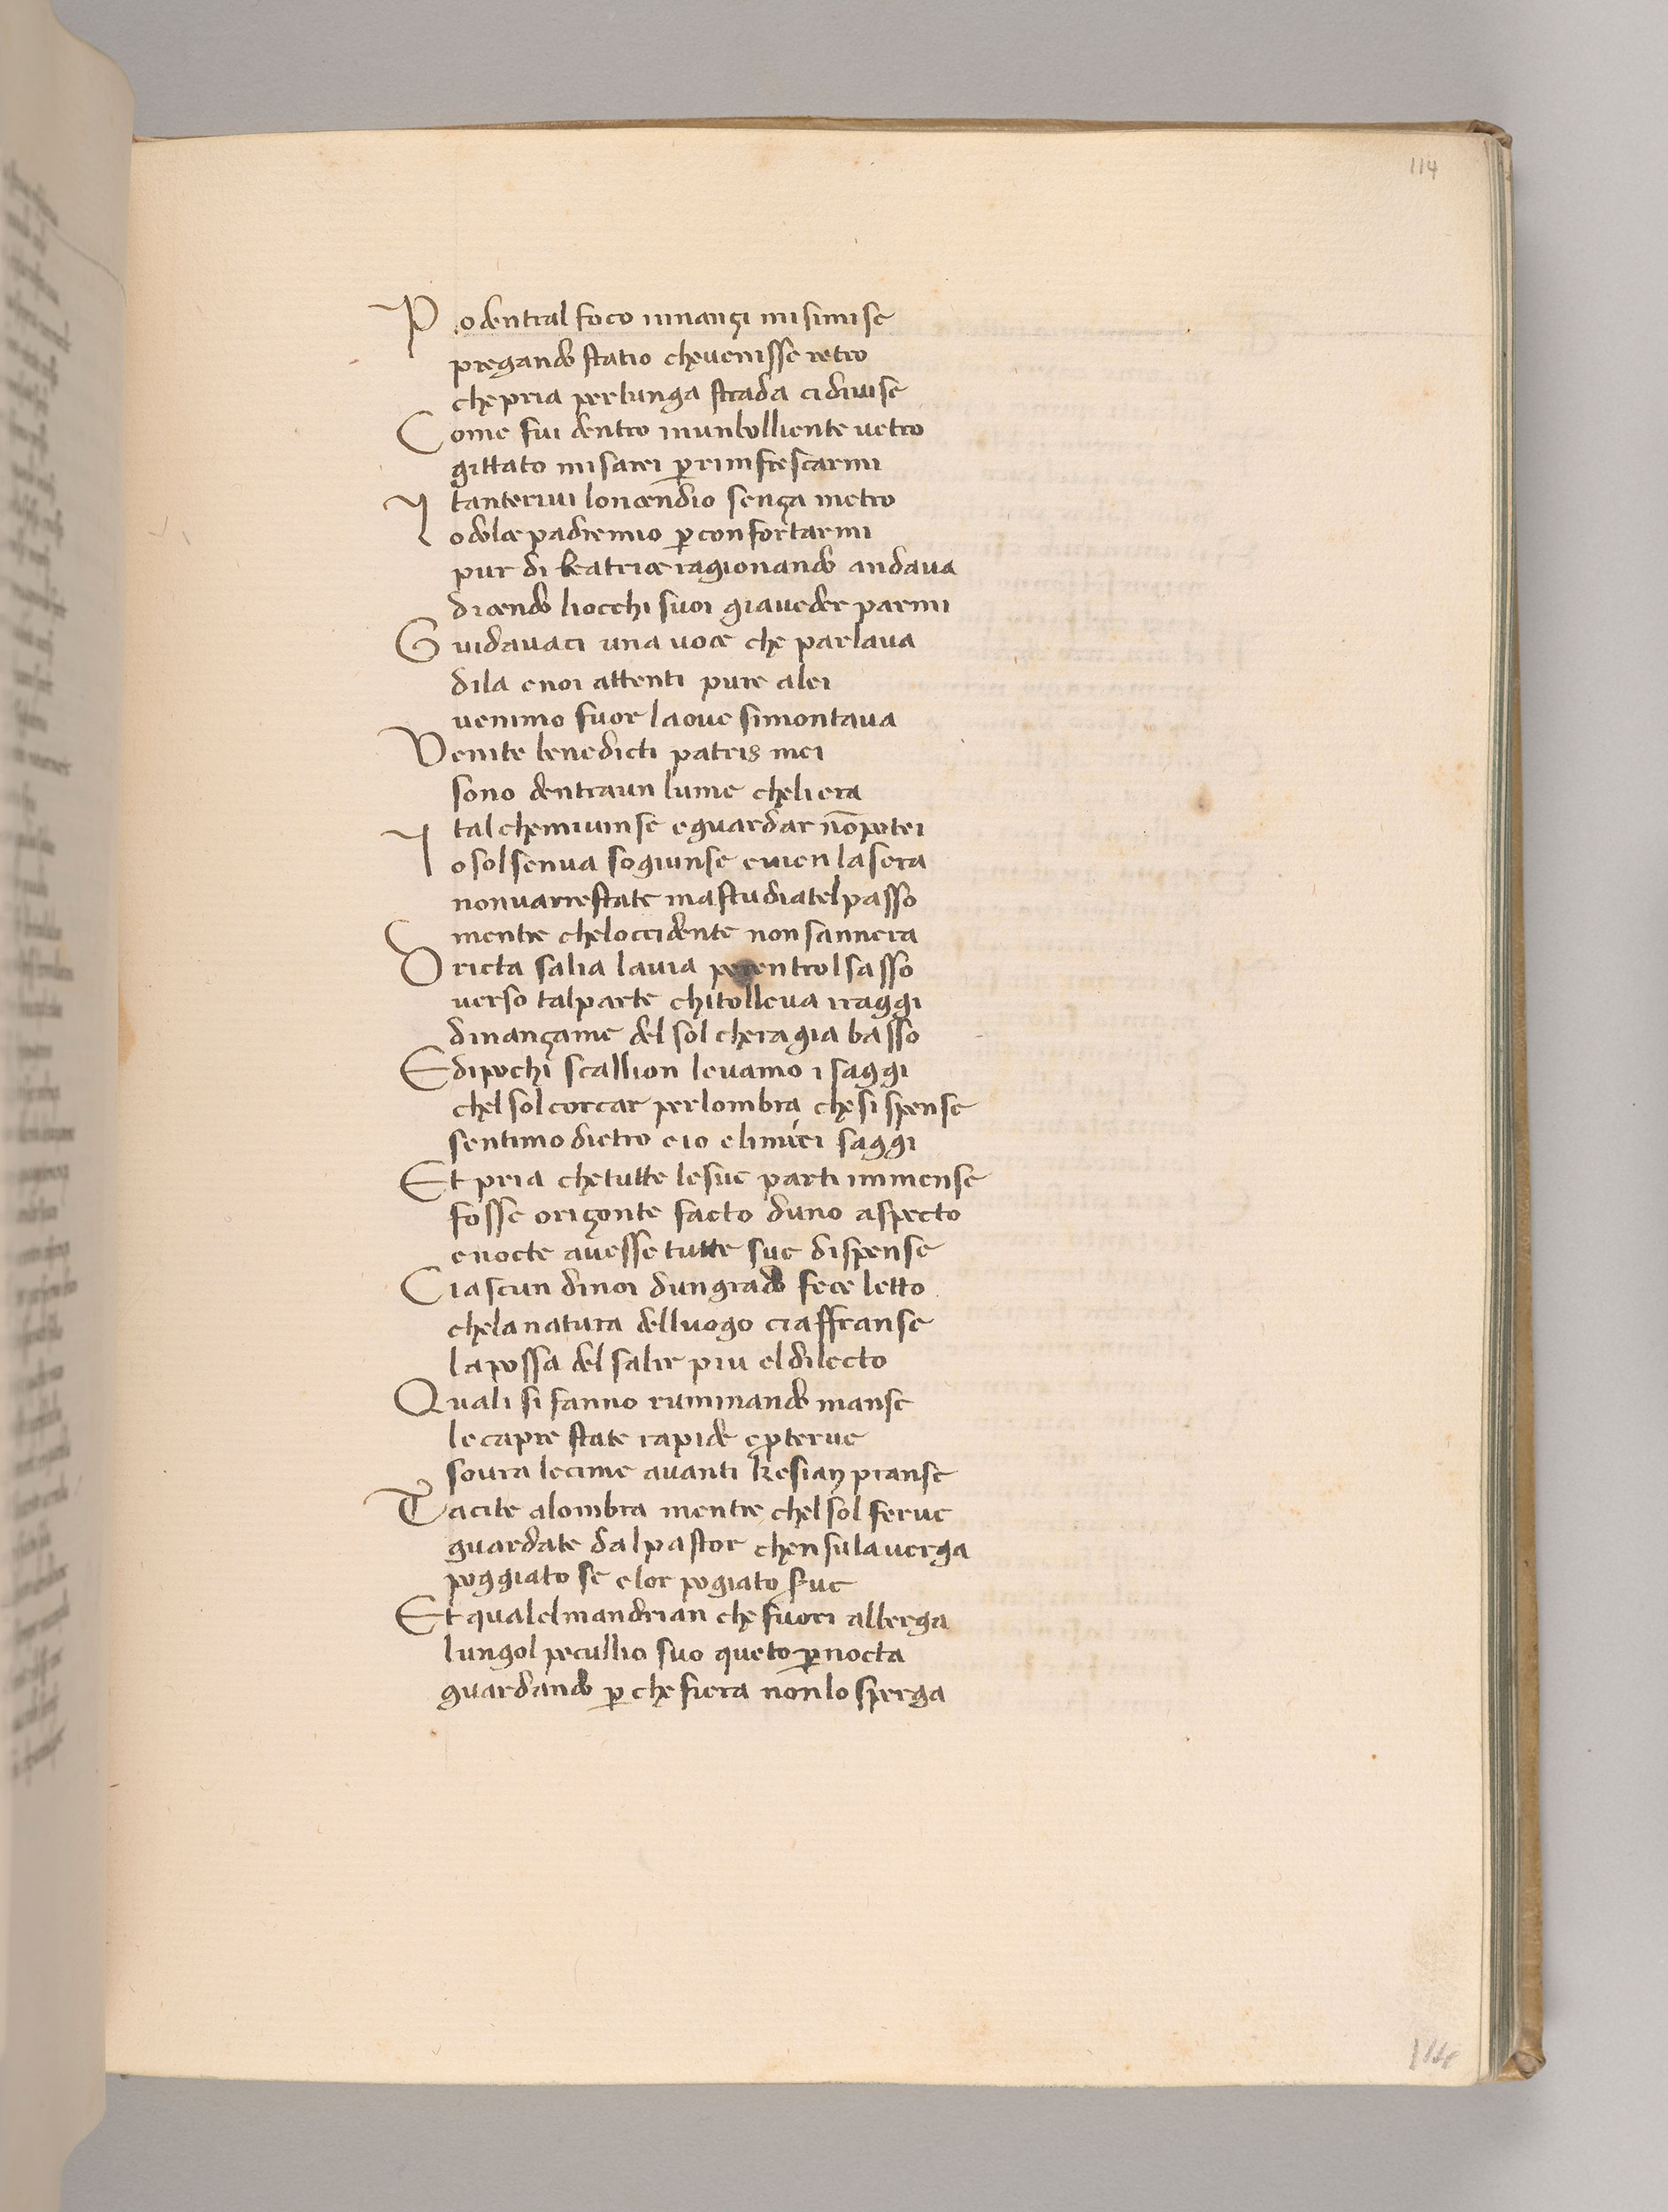 114
Po dentral foco innançi mi simise
pregando statio chevenisse retro
chepria perlunga strada cidivise
Come fui dentro inunbolliente vetro
gittato misarei p rinfrescarmi
tanterivi loncendio sença metro
Io dolce padremio p confortarmi
pur di beatrice ragionando andava
dicendo liocchi suoi giaveder parmi
Guidavaci una voce che parlava
dila enoi attenti pure alei
venimo fuor laove simontava
Venite benedicti patris mei
sono dentraun lume cheliera
tal chemivinse eguardar nō potei
Io sol senva sogiunse evien lasera
nonvarrestate mastudiatel passo
mentre cheloccidente non sannera
Dricta salia lavia perentrol sasso
verso talparte chitolleva iraggi
dinançame del sol cheragia basso
Edipochi scallion levamo i saggi
chel sol corcar per lombra che si spense
sentimo dietro eio elimiei saggi
Et pria chetutte lesue parti immense
fosse oriçonte facto duno aspecto
enocte avesse tutte sue dispense
Ciascun dinoi dungrado fece letto
chela natura delluogo ciaffranse
lapossa del salir piu eldilecto
Quali si fanno ruminando manse
lecapre state rapide epterve
sovra lecime avanti kesian pranse
Tacite alombra mentre chel sol ferve
guardate dalpastor chen sulaverga
poggiato se elor pogiato serve
Et qualelmandrian che fuori alberga
lungol pecullio suo queto pnocta
guardando p che fiera nonlo sperga
114